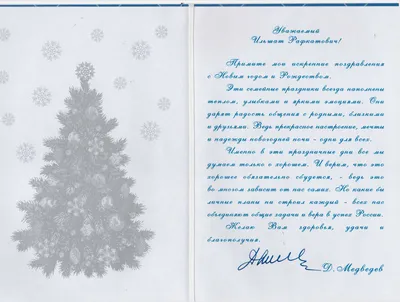 Уважаемый
Ильшат Рафкатович!
Примите мои искренние поздравления
с Новым годом и Рождеством.
Эти семейные праздники всегда наполнены
теплом, улыбками и яркими эмоциями. Они
дарят радость общения с родными, близкими
и друзьями. Ведь прекрасное настроение, мечты
и надежды новогодней ночи - одни для всех.
Именно в эти праздничные дни все мы
думаем только о хорошем. И верим, что это
хорошее обязательно сбудется, - ведь это
во многом зависит от нас самих. Но какие бы
личные планы ни строил каждый - всех нас
объединяют общие задачи и вера в успех России.
Желаю Вам здоровья, удачи и
благополучия.
Д. Медведев